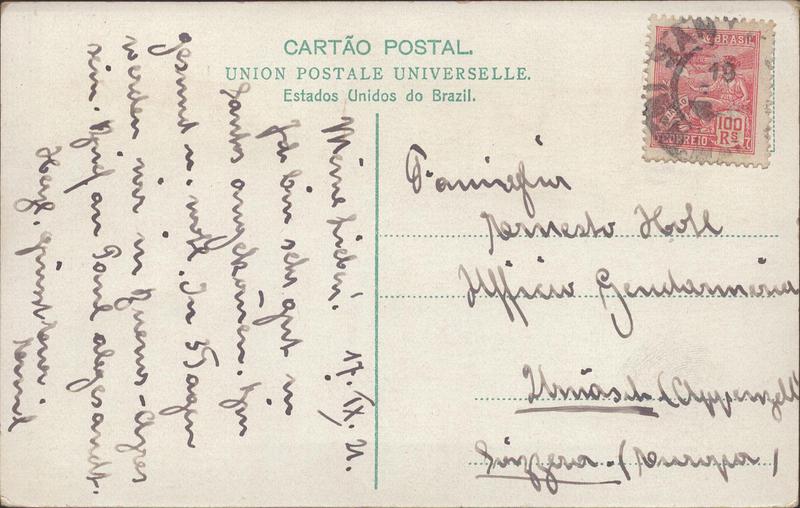 CARTÃO POSTAL.
UNION POSTALE UNIVERSELLE.
Estados Unidos do Brazil.
BRASIL
100
Rs
CORREIO
SANTOS
Meine Lieben! 17. IX. 21.
Ich bin sehr gut in
Santos angekomen. Bin
gesund u. wohl. In 5 Tagen
werden wir in Buenos-Ayres
sein. Brief an Paul abgesandt.
Herzl. grüsst Euer
Ernesto Holl
Ufficio Gendarmeria
Urnäsch (Appenzell
Svizzera. (Europa)